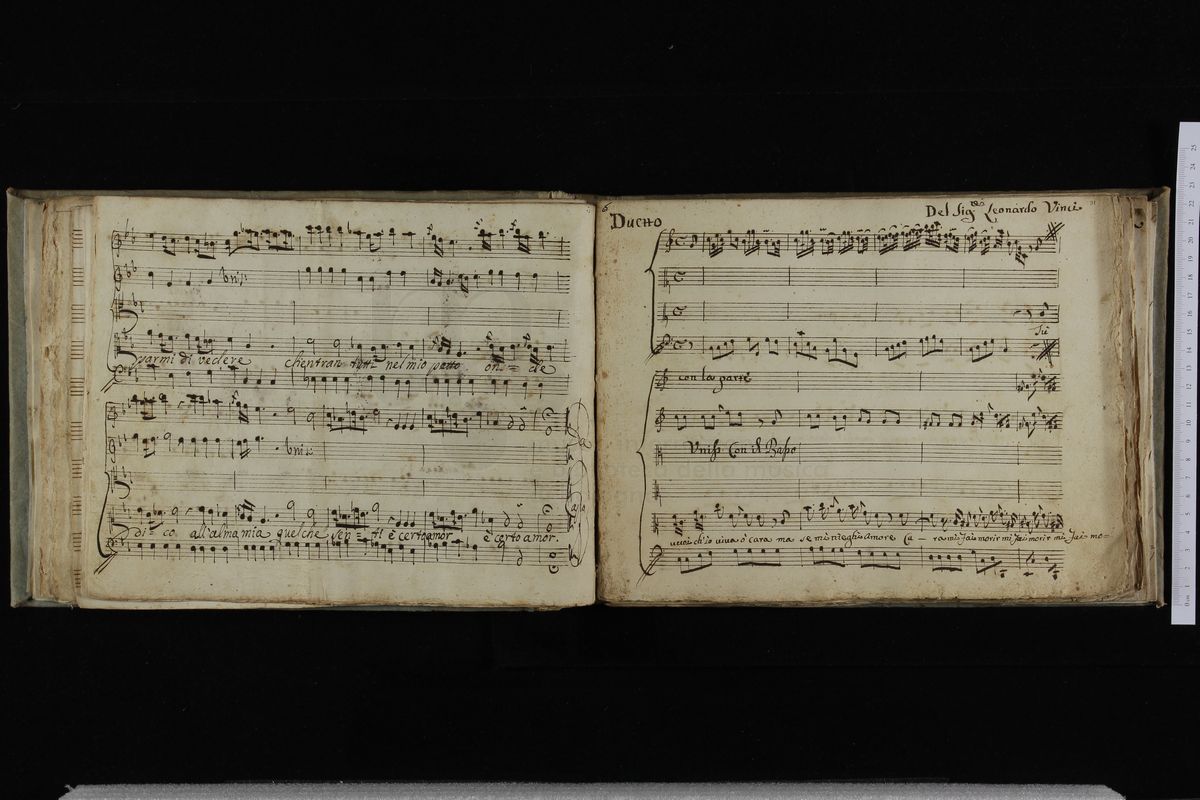 Unis:
parmi di vedere ch'entran tutt: nel mio petto on = de
Unis:
di = co all'alma mia quel che sen = ti è certo amor è certo amor.
6
Duetto
Del Sig.re Leonardo Vinci
Tú
con la parte
Uniss Con il Basso
vuoi ch'io viva ò cara ma se mi nieghi amore Ca - ra mi fai morir mi fai morir mi fai mo=